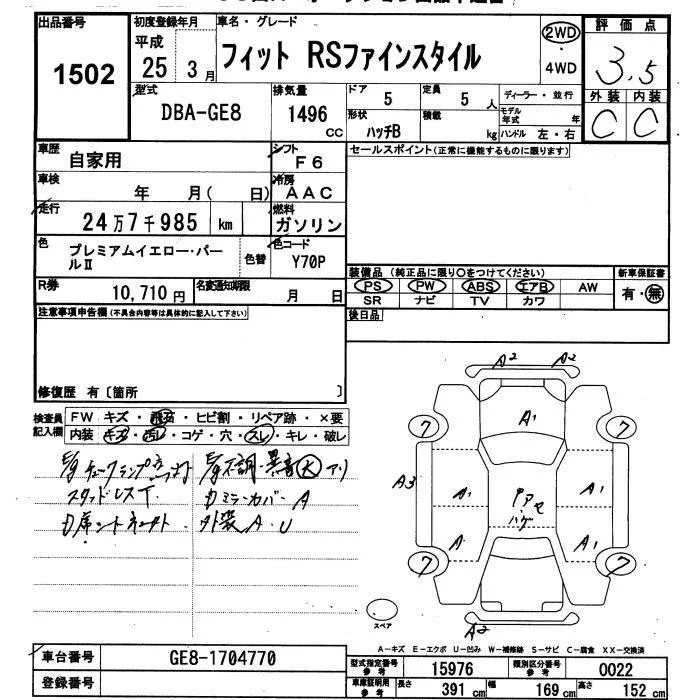 出品番号
1502
初度登録年月
平成
25 3月
車名・グレード
フィット RSファインスタイル
2WD
・
4WD
評価点
3.5
外装 内装
C C
型式
DBA-GE8
排気量
1496 CC
ドア 5
定員 5 人
形状 ハッチB
積載 kg
ディーラー・並行
モデル年式 年
ハンドル 左・右
車歴 自家用
シフト F6
セールスポイント(正常に機能するものに限ります)
車検 年 月( 日)
冷房 AAC
走行 24万7千985 km
燃料 ガソリン
色 プレミアムイエロー・パールⅡ
色替
色コード Y70P
R券 10,710円
名変通知期限 月 日
装備品(純正品に限り○をつけてください)
PS PW ABS エアB AW
SR ナビ TV カワ
新車保証書
有・無
注意事項申告欄(不具合内容等は具体的に記入して下さい)
後日品
修復歴 有〔箇所 〕
検査員記入欄
FW キズ・飛石・ヒビ割・リペア跡・×要
内装 キズ・汚レ・コゲ・穴・スレ・キレ・破レ
スタッドレスT
ミラーカバーA
外装A・U
A2 A2
7 A1 7
A3 A1 A1
ハゲ
A A1
7 7
A2
スペア
A-キズ E-エクボ U-凹み W-補修跡 S-サビ C-腐食 XX-交換済
車台番号 GE8-1704770
登録番号
型式指定番号 参考 15976
類別区分番号 参考 0022
車庫証明用 参考 長さ 391 cm 幅 169 cm 高さ 152 cm